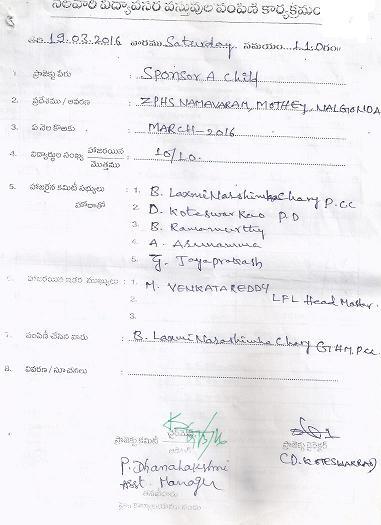 నెలవారి విద్యావసర వస్తువుల పంపిణి కార్యక్రమం
తేది. 19.03.2016 వారము Saturday. సమయం. 11.0గం॥
1. ప్రాజెక్టు పేరు : Sponsor A Child
2. ప్రదేశము / ఆవరణ : ZPHS NAMAVARAM, MOTHEY, NALGONDA
3. ఏ నెల కొఱకు : MARCH-2016
4. విద్యార్థుల సంఖ్య హాజరయిన / మొత్తము : 10/10.
5. హాజరైన కమిటీ సభ్యులు : 1. B. Laxmi Narshimha Chary P.CC
హోదాతో 2. D. Koteswar Rao P.D
3. B. Ramamurthy
4. A.
5. G. Jayaprakash
6. హాజరయిన ఇతర ముఖ్యులు : 1. M. VENKATA REDDY
2. LFL Head Master.
3.
7. పంపిణీ చేసిన వారు : B. Laxmi Narashimha Chary GHM.P.CC.
8. వివరణ / సూచనలు :
ప్రాజెక్టు కమిటీ చైర్మన్ ప్రాజెక్టు డైరెక్టర్
(D. KOTESWARRAO)
P. Dhanalakshmi
Asst. Manager